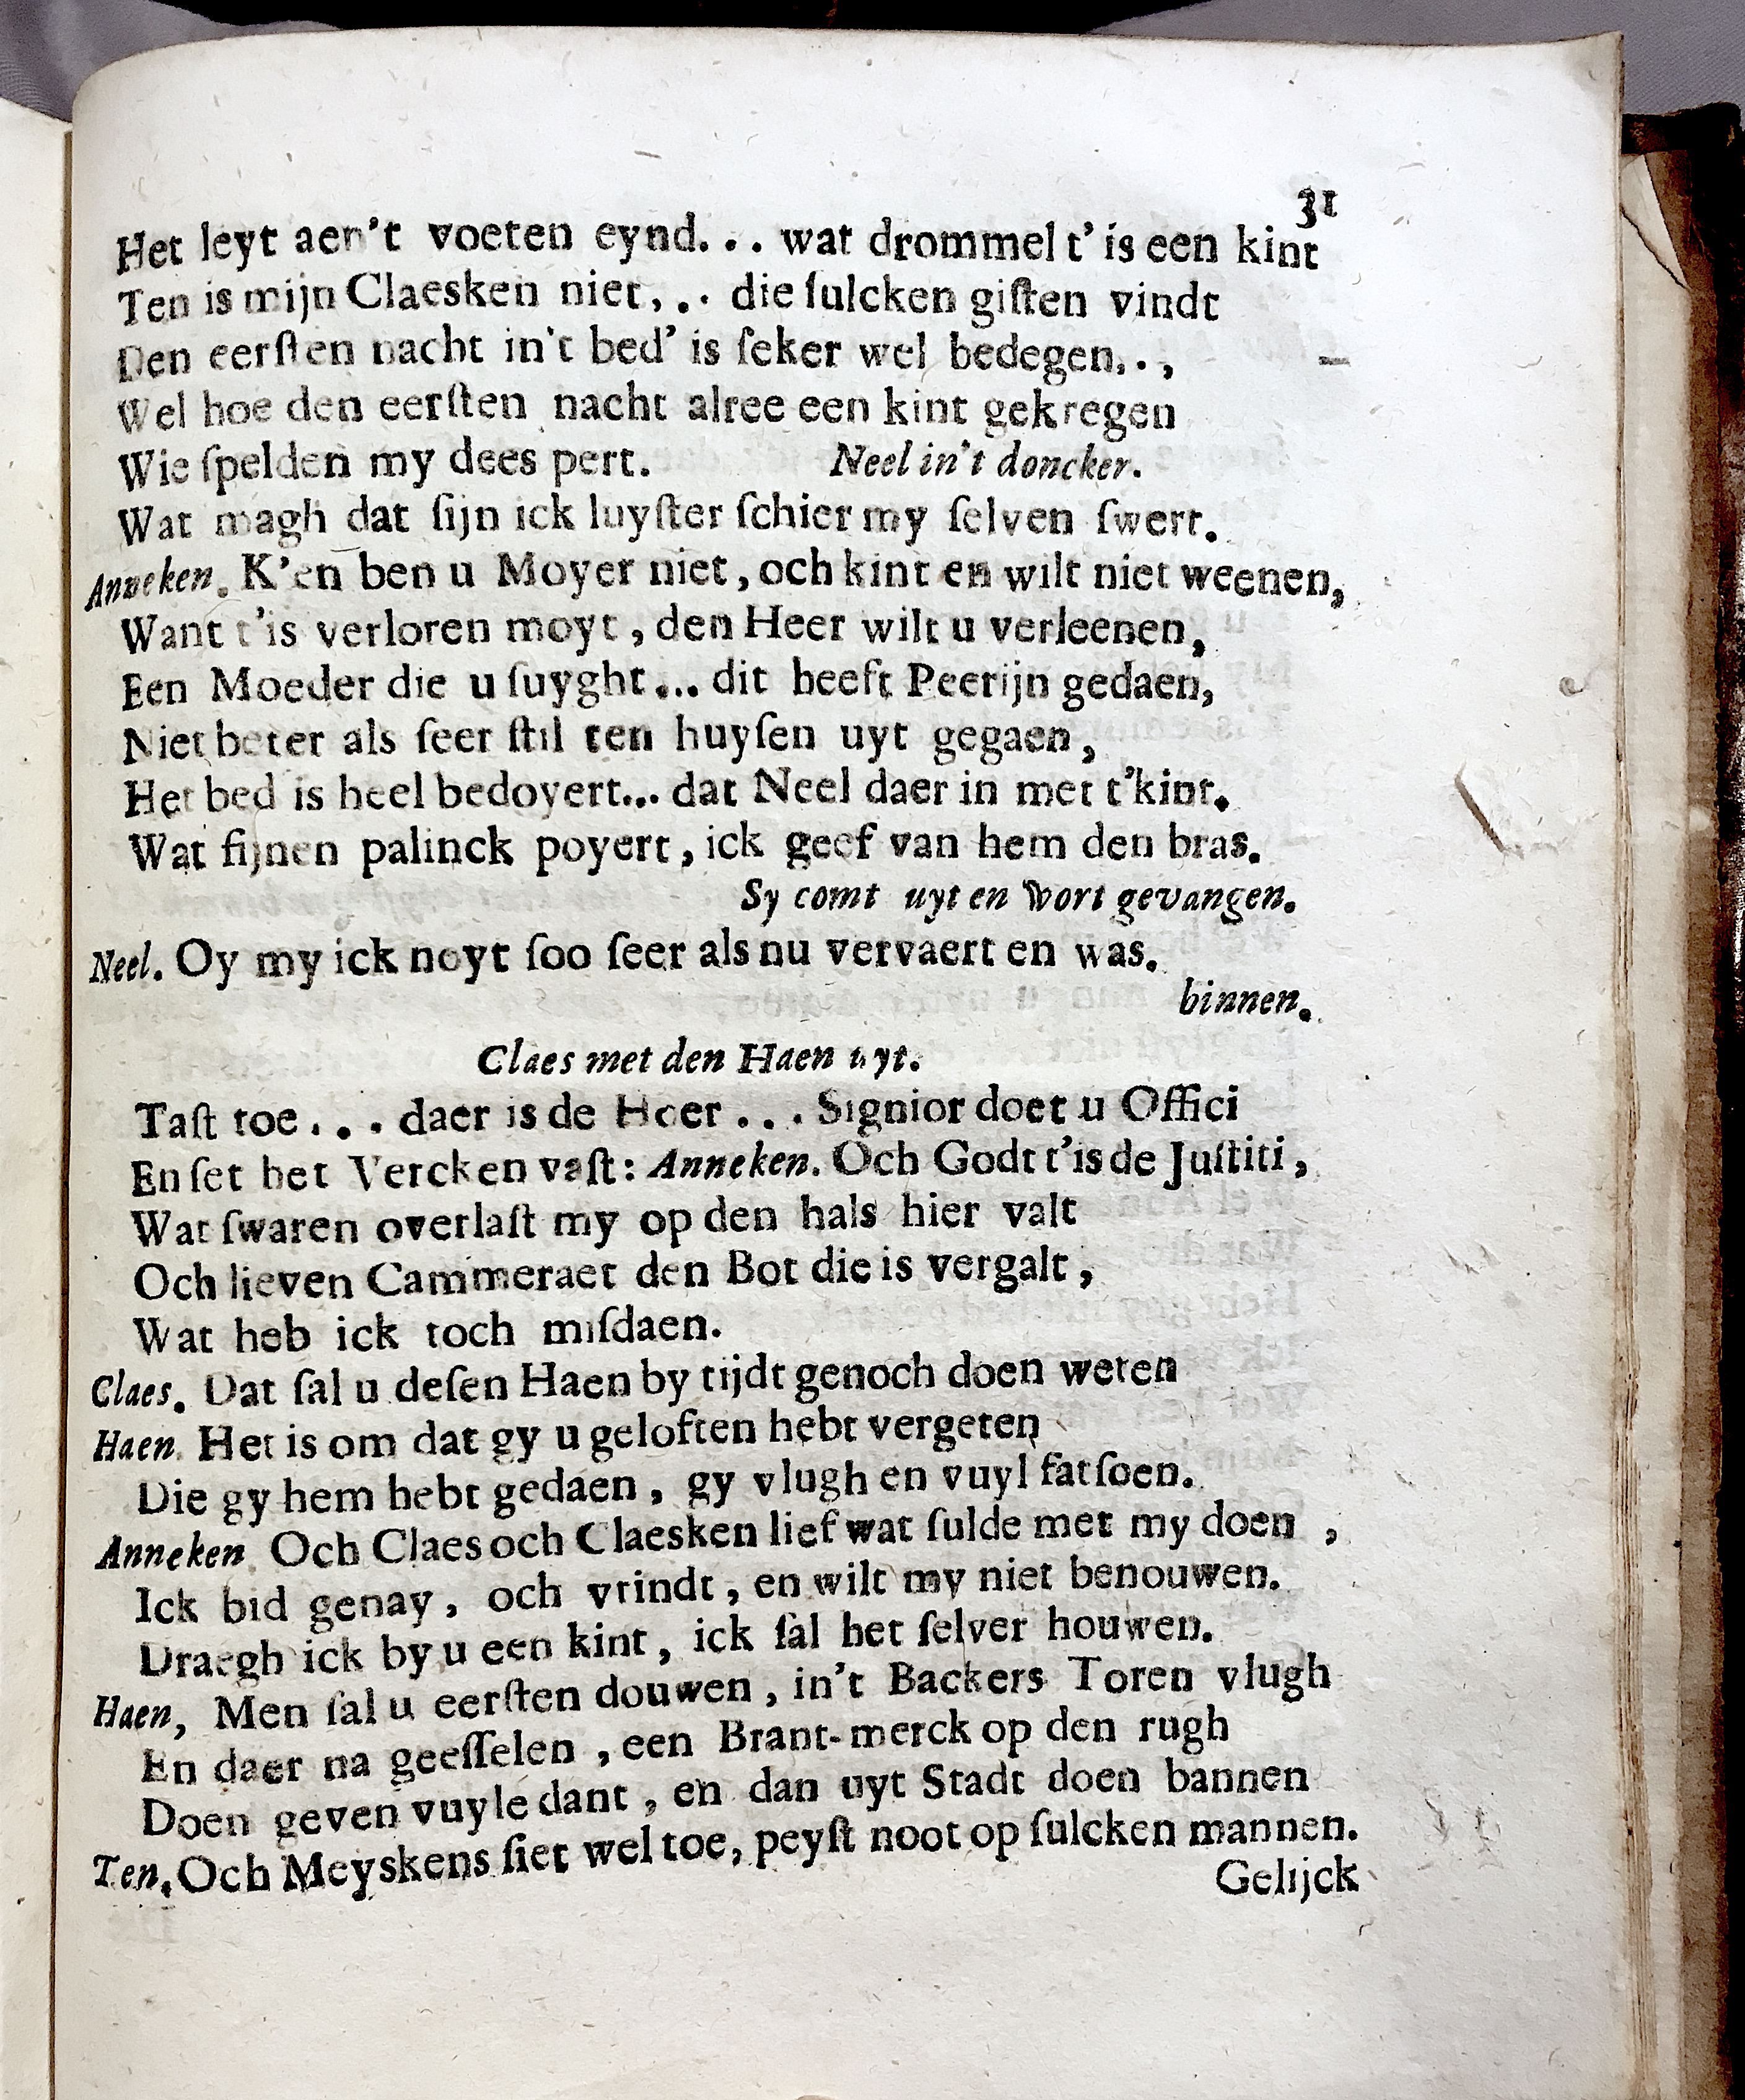 31
Het leyt aen't voeten eynd... wat drommel t' is een kint
Ten is mijn Claesken niet,.. die ſulcken giſten vindt
Den eerſten nacht in't bed' is ſeker wel bedegen..,
Wel hoe den eerſten nacht alree een kint gekregen
Wie ſpelden my dees pert. Neel in't doncker.
Wat magh dat ſijn ick luyſter ſchier my ſelven ſwert.
Anneken. K'en ben u Moyer niet, och kint en wilt niet weenen,
Want t'is verloren moyt, den Heer wilt u verleenen,
Een Moeder die u ſuyght... dit heeft Peerijn gedaen,
Niet beter als ſeer ſtil ten huyſen uyt gegaen,
Het bed is heel bedoyert... dat Neel daer in met t'kint.
Wat fijnen palinck poyert, ick geef van hem den bras.
Sy comt uyt en wort gevangen.
Neel. Oy my ick noyt ſoo ſeer als nu vervaert en was.
binnen.
Claes met den Haen uyt.
Taſt toe... daer is de Heer... Signior doet u Offici
En ſet het Vercken vaſt: Anneken. Och Godt t'is de Juſtiti,
Wat ſwaren overlaſt my op den hals hier valt
Och lieven Cammeraet den Bot die is vergalt,
Wat heb ick toch miſdaen.
Claes. Dat ſal u deſen Haen by tijdt genoch doen weten
Haen. Het is om dat gy u geloften hebt vergeten
Die gy hem hebt gedaen, gy vlugh en vuyl fatſoen.
Anneken. Och Claes och Claesken lief wat ſulde met my doen,
Ick bid genay, och vrindt, en wilt my niet benouwen.
Draegh ick by u een kint, ick ſal het ſelver houwen.
Haen, Men ſal u eerſten douwen, in't Backers Toren vlugh
En daer na geeſſelen, een Brant-merck op den rugh
Doen geven vuyle dant, en dan uyt Stadt doen bannen
Ten. Och Meyskens ſiet wel toe, peyſt noot op ſulcken mannen.
Gelijck